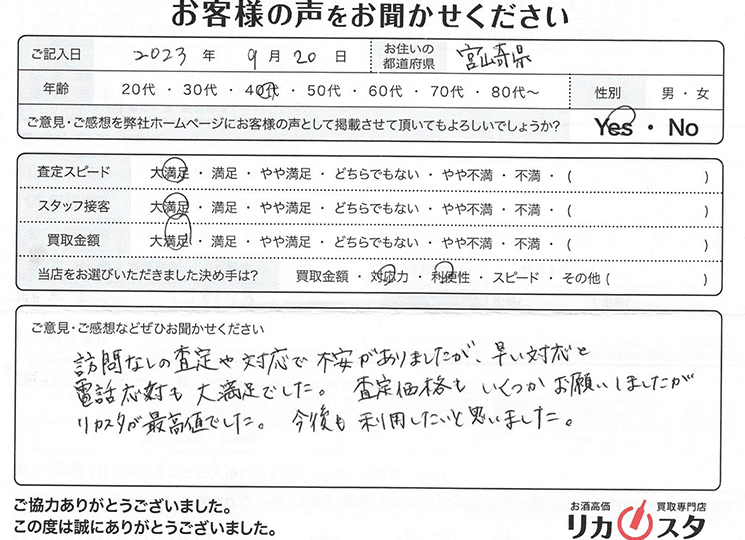 お客様の声をお聞かせください
ご記入日 2023 年 9 月 20 日 お住いの都道府県 宮崎県
年齢 20代 ・ 30代 ・ 40代 ・ 50代 ・ 60代 ・ 70代 ・ 80代～ 性別 男 ・ 女
ご意見・ご感想を弊社ホームページにお客様の声として掲載させて頂いてもよろしいでしょうか? Yes ・ No
査定スピード 大満足 ・ 満足 ・ やや満足 ・ どちらでもない ・ やや不満 ・ 不満 ・ ( )
スタッフ接客 大満足 ・ 満足 ・ やや満足 ・ どちらでもない ・ やや不満 ・ 不満 ・ ( )
買取金額 大満足 ・ 満足 ・ やや満足 ・ どちらでもない ・ やや不満 ・ 不満 ・ ( )
当店をお選びいただきました決め手は? 買取金額 ・ 対応力 ・ 利便性 ・ スピード ・ その他 ( )
ご意見・ご感想などぜひお聞かせください
訪問なしの査定や対応で不安がありましたが、早い対応と
電話応対も大満足でした。 査定価格もいくつかお願いしましたが
リカスタが最高値でした。 今後も利用したいと思いました。
ご協力ありがとうございました。
この度は誠にありがとうございます。
お酒高価 買取専門店
リカスタ